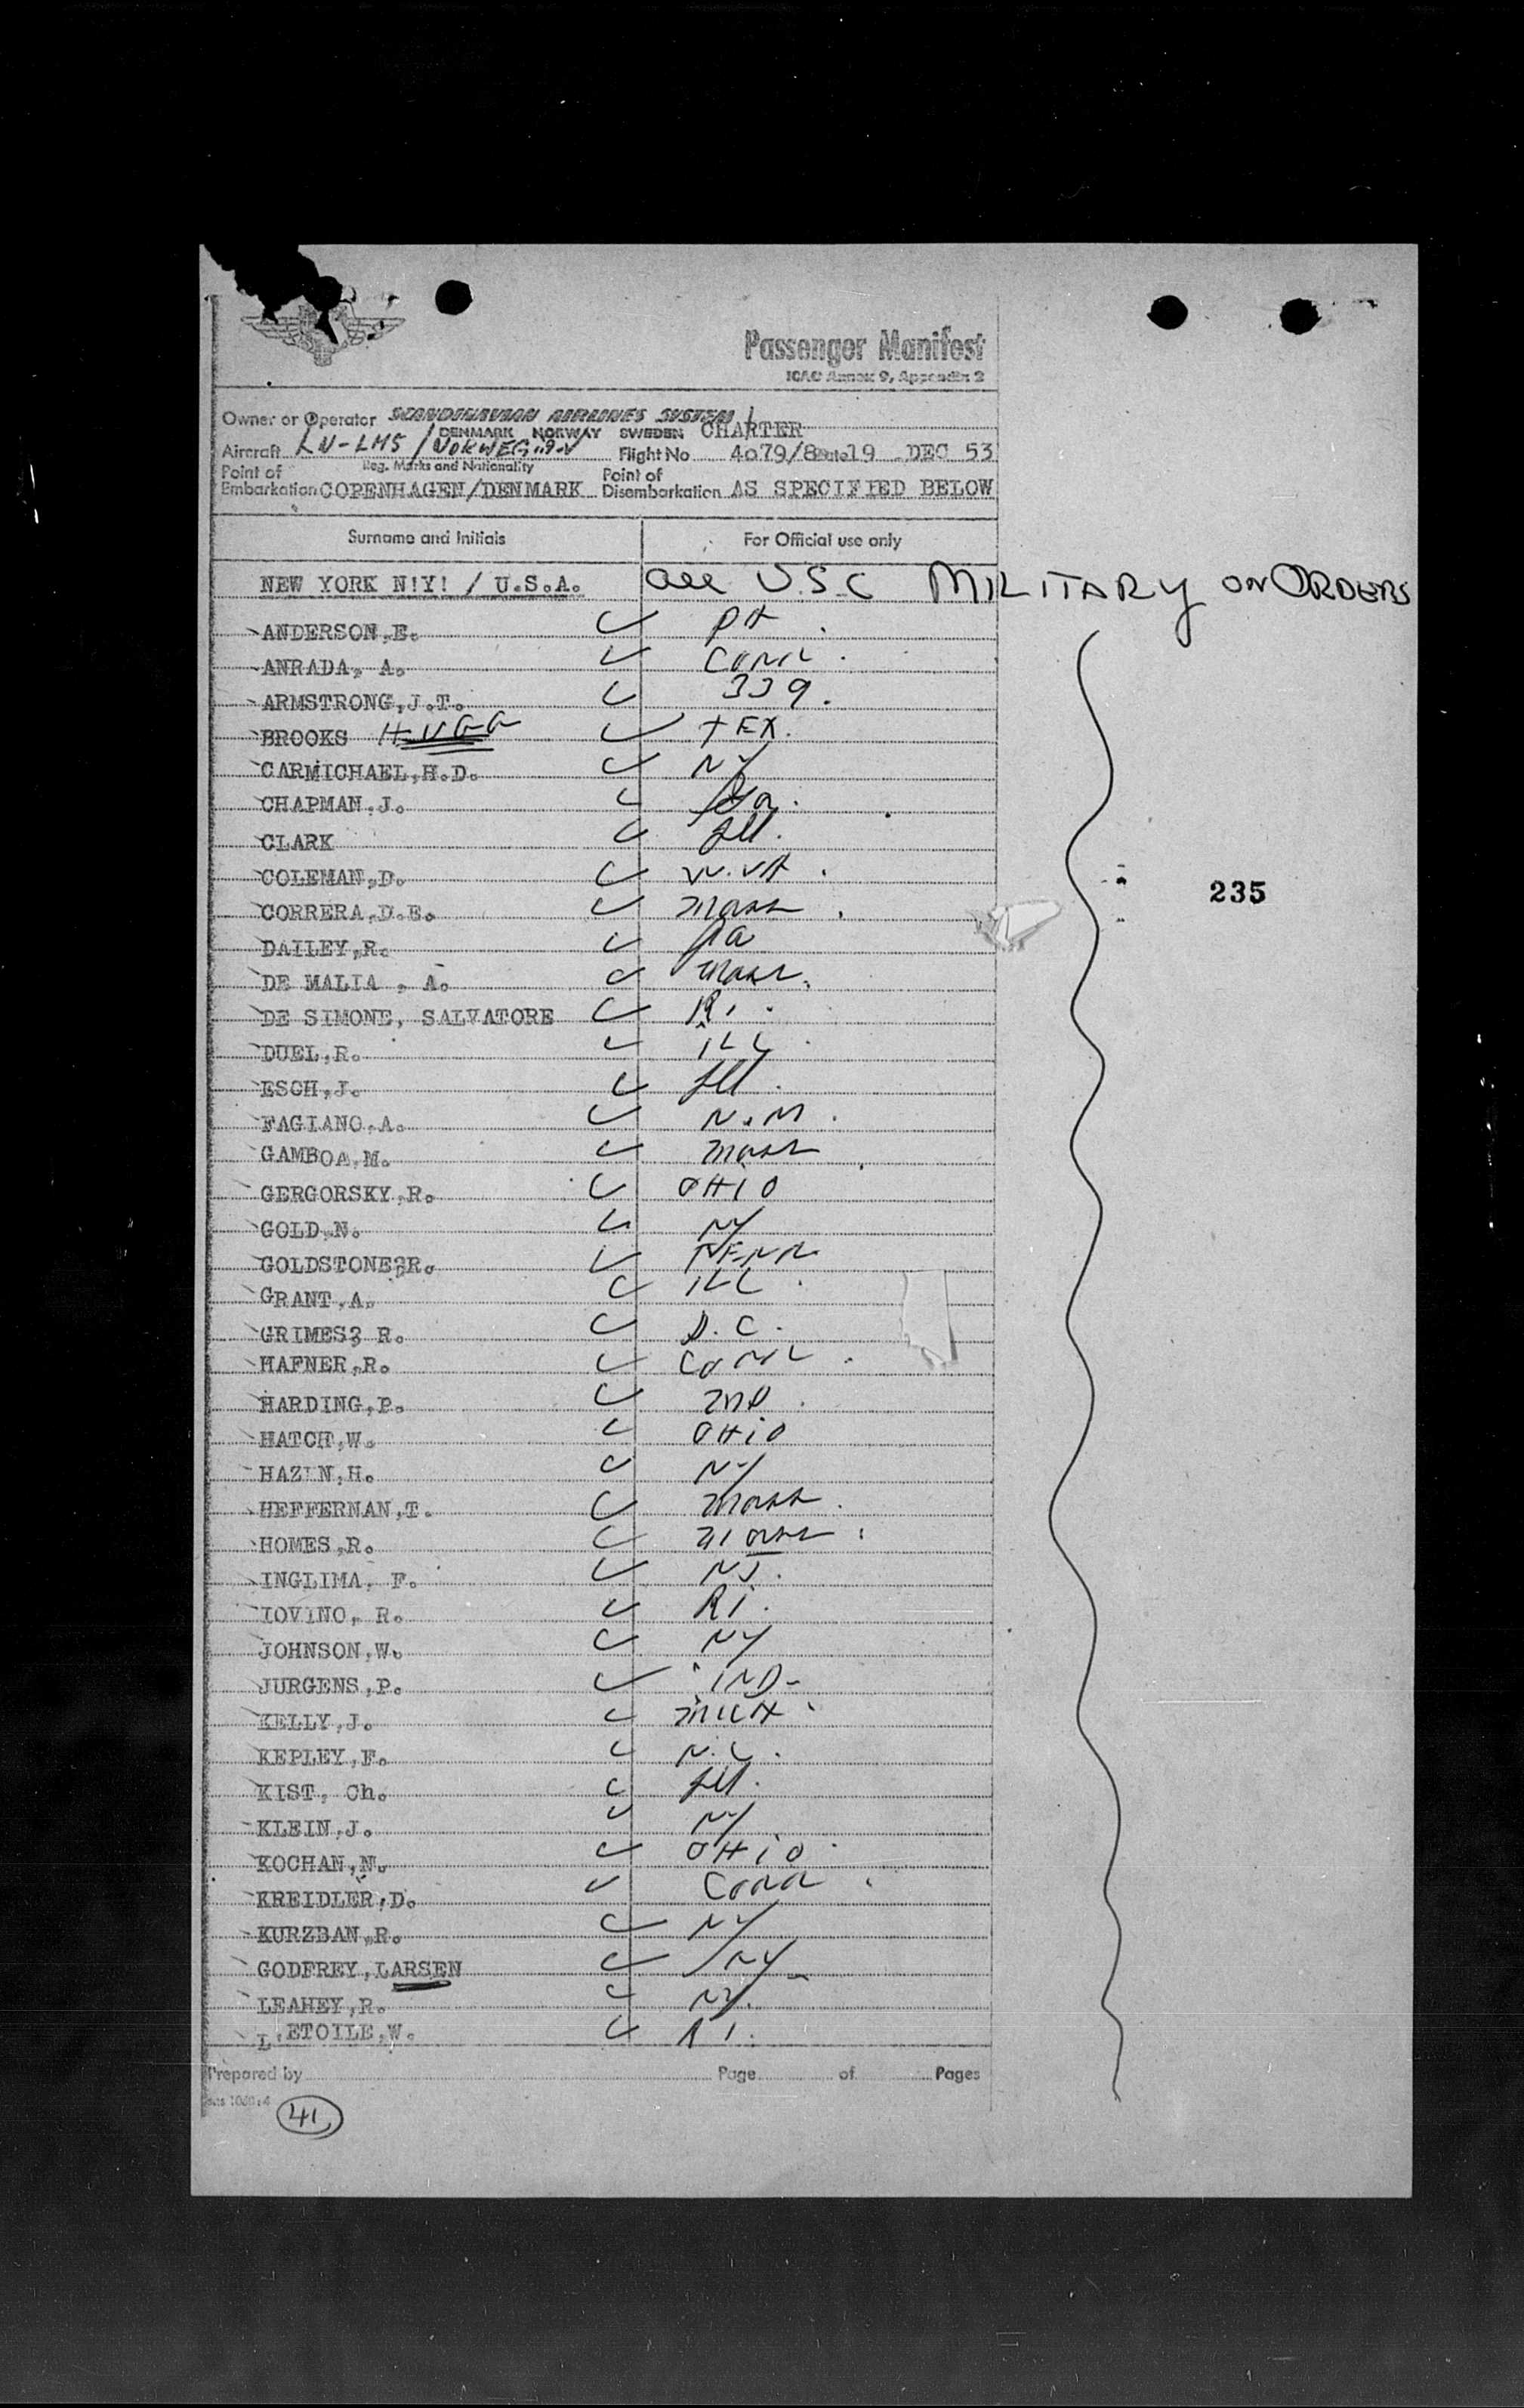 Passenger Manifest
ICAO Annex 9, Appendix 2
Owner or Operator SCANDINAVIAN AIRLINES SYSTEM /
DENMARK NORWAY SWEDEN CHARTER
Aircraft LN-LMS / NORWEGIAN Flight No 4079/8 Date 19 DEC 53
Reg. Marks and Nationality
Point of Embarkation COPENHAGEN/DENMARK Point of Disembarkation AS SPECIFIED BELOW
Surname and Initials For Official use only
NEW YORK N!Y! / U.S.A. all U.S.C MILITARY ON ORDERS
ANDERSON,E. PA
ANRADA, A. Conn.
ARMSTRONG,J.T. 339.
BROOKS HUGG TEX.
CARMICHAEL,H.D. NY
CHAPMAN,J. Ga.
CLARK Ill.
COLEMAN,D. W.VA.
235
CORRERA,D.E. Mass.
DAILEY,R. Pa
DE MALIA , A. Mass.
DE SIMONE, SALVATORE RI.
DUEL,R. ILL.
ESCH,J. Ill.
FAGIANO,A. N.M.
GAMBOA,M. Mass
GERGORSKY,R. OHIO
GOLD,N. NY
GOLDSTONE?R. TENN
GRANT,A. ILL.
GRIMES? R. D.C.
HAFNER,R. Conn.
HARDING,P. MD.
HATCH,W. OHIO
HAZEN,H. NY
HEFFERNAN,T. Mass.
HOMES,R. Mass.
INGLIMA, F. NJ.
IOVINO, R. RI.
JOHNSON,W. NY
JURGENS,P. IND-
KELLY,J. MICH
KEPLEY,F. N.C.
KIST, Ch. Ill.
KLEIN,J. NY
KOCHAN,N. OHIO
KREIDLER,D. Conn.
KURZBAN,R. NY
GODFREY,LARSEN NY
LEAHEY,R. NY.
L'ETOILE,W. RI.
Prepared by Page of Pages
41